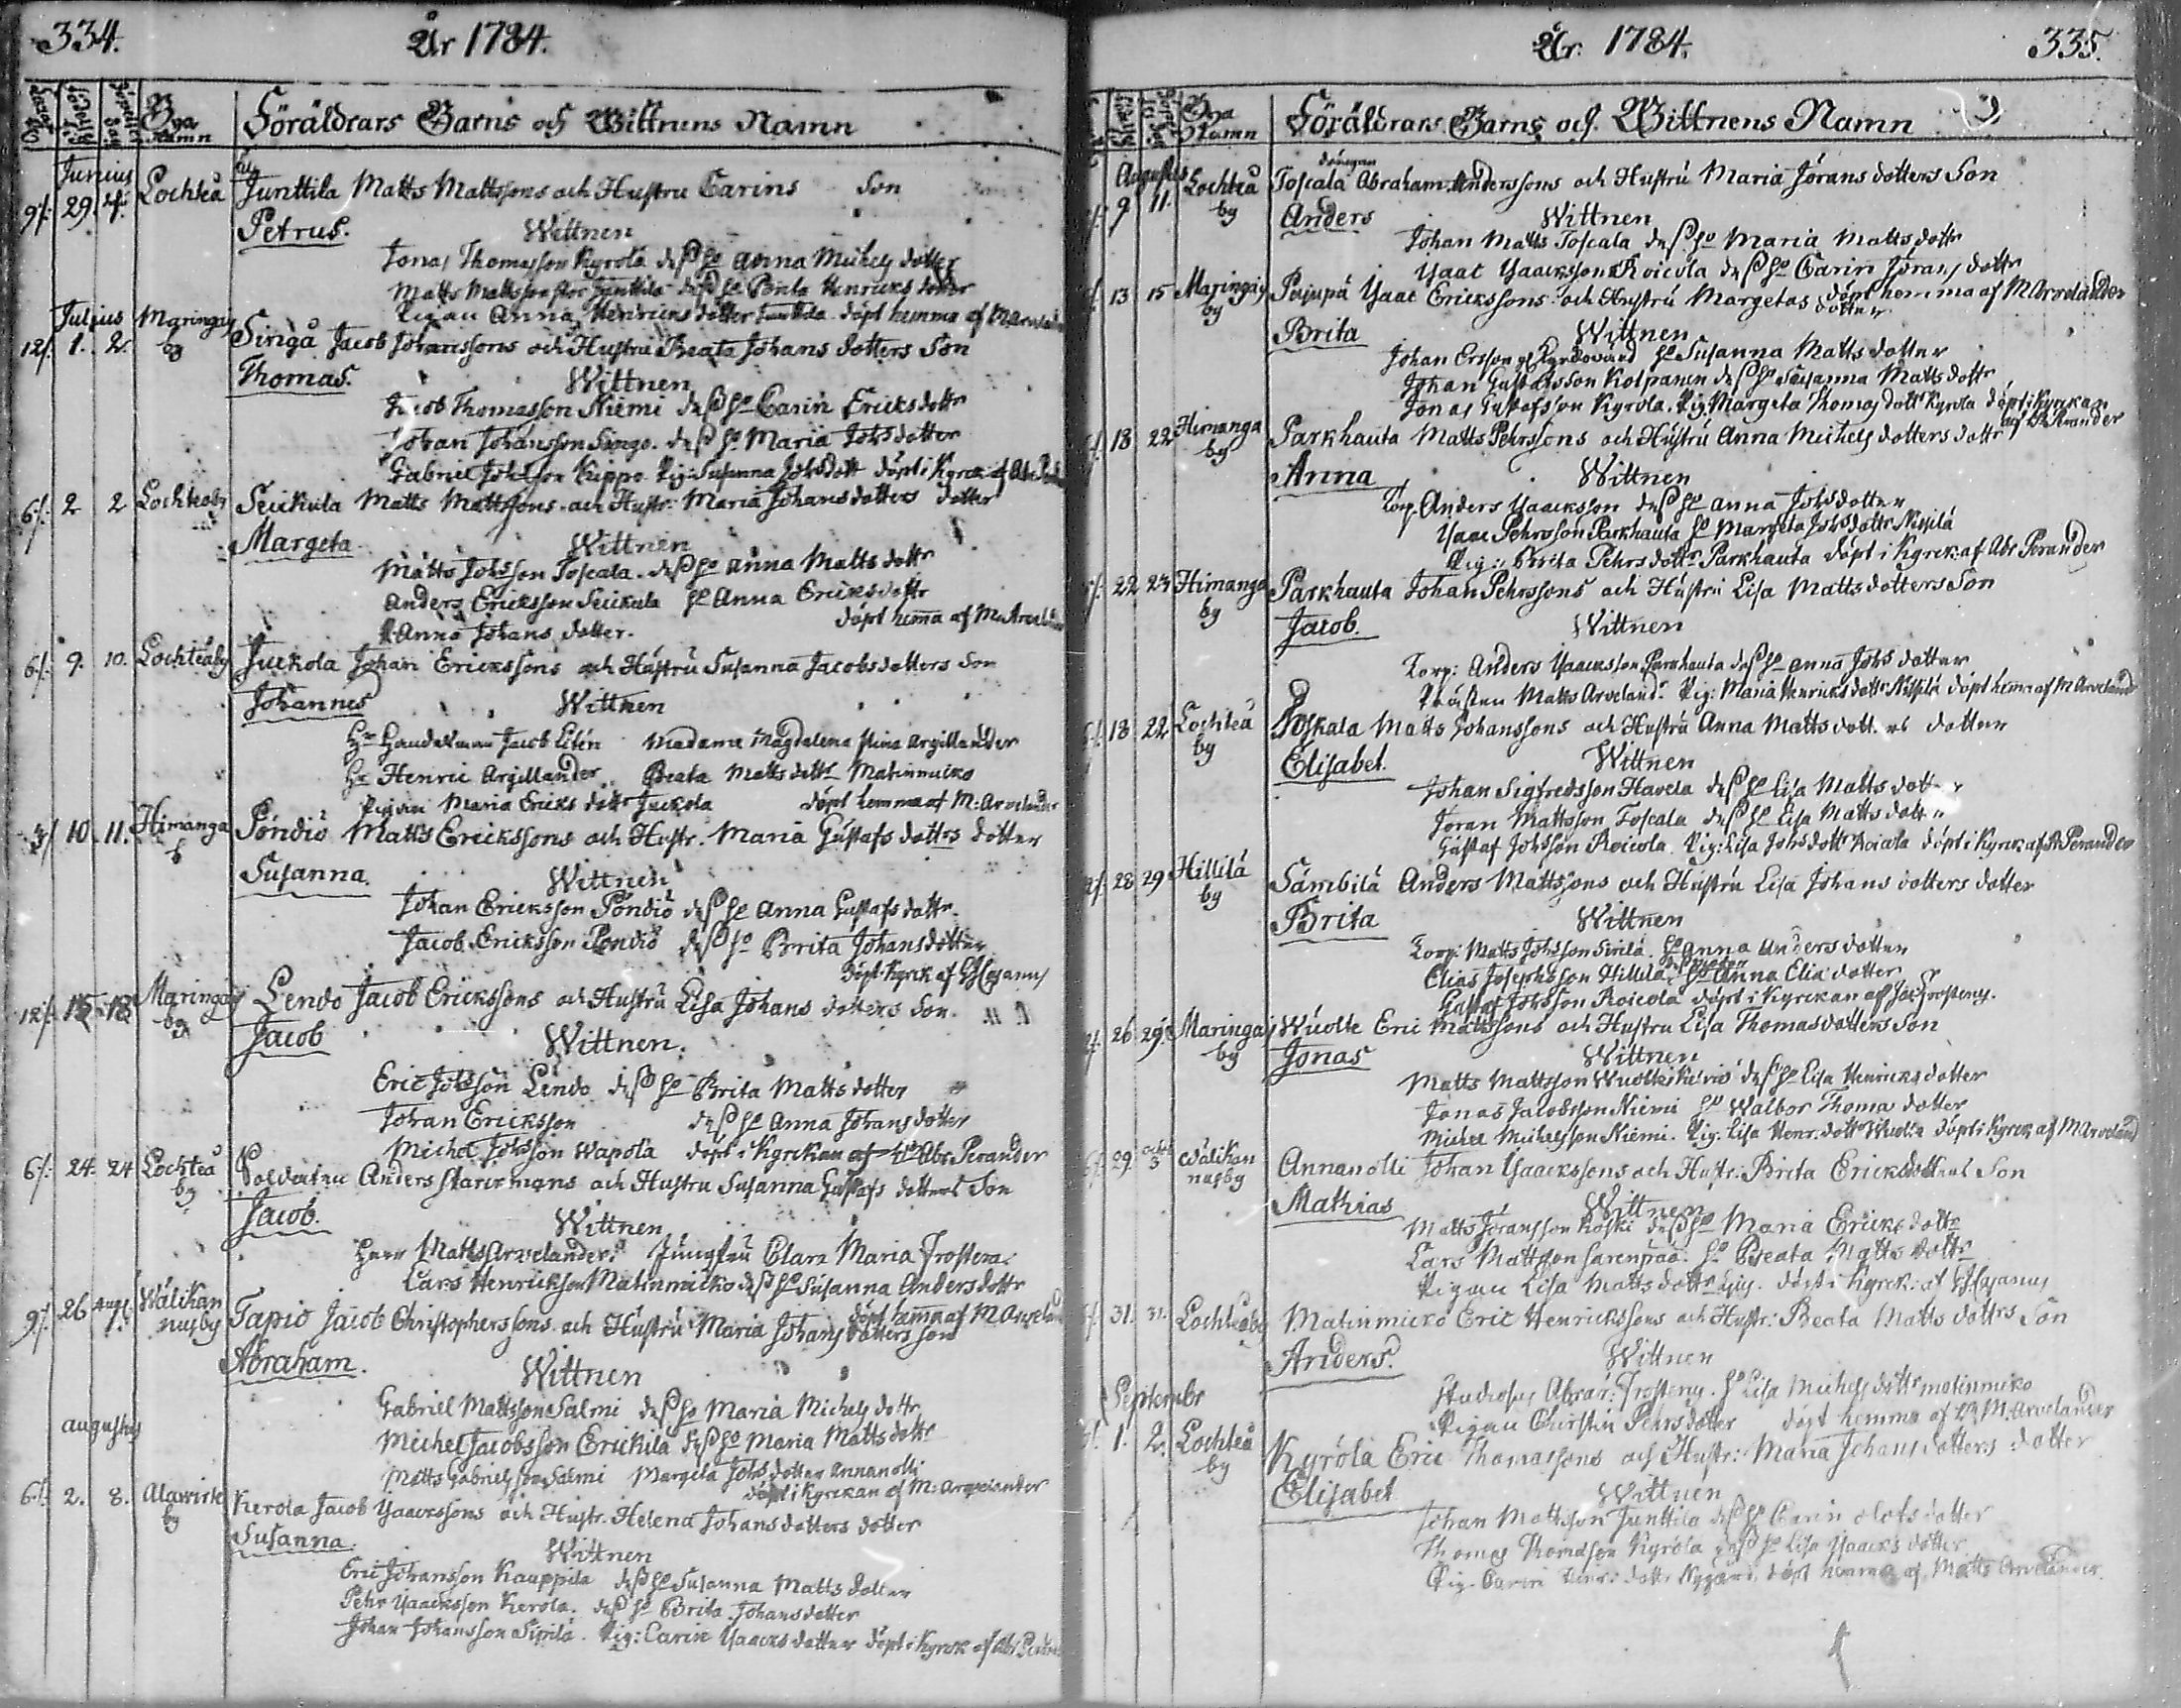 334.
År 1784.
Bya Namn
Föräldrars Barns och Wittnens Namn
Junius
9/. 29. Lochteå Junttila Matts Mattssons och Hustru Carins Son
Petrus.
Wittnen
Jonas Thomasson Kyrölä dess ho Anna Michels dotter
Matts Mattsson Junttila dess ho Brita Henricks dotter
Pigan Anna Henricks dotter Junttila döpt hemma af M Arvelander
Julius
12/. 1. 2. Maringais by
Siringå Jacob Johanssons och Hustru Beata Johans dotters Son
Thomas.
Wittnen
Jacob Thomasson Niemi dess ho Carin Ericks dottr
Johan Johansson dess ho Maria Johsdotter
Gabriel Johsson Kuppo. Pig: Susanna Johsdott döpt i Kyrck: af
6/. 2 2 Lochteåby Seickula Matts Mattssons och Hustr: Maria Johans dotters dotter
Margeta
Wittnen
Matts Johsson Toscala. dess ho Anna Matts dottr
Anders Ericksson Seickula ho Anna Ericksdottr
P. Anna Johans dotter. döpt hemma af M: Arvelander
6/. 9. 10. Lochteåby Juckola Johan Erickssons och Hustru Susanna Jacobsdotters Son
Johannes
Wittnen
Hr Handelsman Jacob Lilén Madame Magdalena Stina Argillander
Hr Henric Argillander Beata Matts dottr Matinmicko
Pigan Maria Ericks dottr Juckola döpt hemma af M: Arvelander
3/. 10. 11. Himanga b Pöndiö Matts Erickssons och Hustr. Maria Gustafs dottrs dotter
Susanna.
Wittnen
Johan Ericksson Pöndiö dess ho Anna Gustafs dottr.
Jacob Ericksson Pöndiö dess ho Brita Johansdotter
döpt i Kyrck af
12/. 15 18 Maringais by
Lendo Jacob Erickssons och Hustru Lisa Johans dotters Son.
Jacob
Wittnen.
Eric Johsson Lendo dess ho Brita Matts dotter
Johan Ericksson dess ho Anna Johans dotter
Michel Johsson Wapola döpt i Kyrckan af Abr. Perander
6/. 24. 24 Lochteå by
Soldaten Anders Starckmans och Hustru Susanna Gustafs dotters Son
Jacob.
Wittnen
Herr Matts Arvelander. Jungfru Clara Maria Frostera
Lars Henricksson Matinmicko dess ho Susanna Anders dottr
döpt hemma af M Arvelander
9/. 26 Aug. 1. Wälikannus by
Tapio Jacob Christopherssons och Hustru Maria Johans dotters son
Abraham.
Wittnen
Gabriel Mattsson Salmi dess ho Maria Michels dottr
Michel Jacobsson Erickilä dess ho Maria Matts dottr
Matts Gabrielsson Salmi Margeta Johs dotter Annanolli
döpt i Kyrckan af M: Arvelander
Augustus
6/. 2. 8. Alawirde by
Kerola Jacob Ysaackssons och Hustr. Helena Johans dotters dotter
Susanna.
Wittnen
Eric Johansson Kauppila dess ho Susanna Matts dotter
Pehr Ysaacksson Kerola. dess ho Brita Johansdotter
Johan Johansson Sipilä. Pig: Carin Ysaacks dotter döpt i Kyrck af Abr Perander
År 1784.
335.
Bya Namn
Föräldrars Barns och Wittnens Namn
Augustus
9 11. Lochteå by
Toscala Abraham Anderssons och Hustru Maria Jörans dotters Son
Anders
Wittnen
Johan Matts Toscala dess ho Maria Matts dottr
Ysaac Ysaacksson Roicola dess ho Carin Jörans dottr
döpt hemma af M Arvelander
13 15 Maringais by
Pujupä Ysaac Erickssons och Hustru Margetas dotter
Brita
Wittnen
Johan Ersson ho Susanna Matts dotter
Johan Gustafsson Kotpanen dess ho Susanna Matts dottr
Jonas Gustafsson Kyrölä. Pig. Margeta Thomas dottr Kyrölä döpt i Kyrckan af Perander
18 22 Himanga by
Parkhauta Matts Pehrssons och Hustru Anna Michels dotters dottr
Anna
Wittnen
Torp. Anders Ysaacksson dess ho Anna Johsdotter
Ysaac Pehrsson Parkhauta ho Margeta Johs dottr Nissilä
Pig: Brita Pehrs dottr Parkhauta döpt i Kyrck: af Abr Perander
22 23 Himanga by
Parkhauta Johan Pehrssons och Hustru Lisa Matts dotters Son
Jacob.
Wittnen
Torp: Anders Ysaacksson Parkhauta dess ho Anna Johs dotter
Prästen Matts Arveland: Pig: Maria Henricks dottr Nissilä döpt hemma af M Arveland
18 22 Lochteå by
Toskala Matts Johanssons och Hustru Anna Matts dotters dotter
Elisabet.
Wittnen
Johan Sigfredsson Havela dess ho Lisa Matts dotter
Jöran Mattsson Toscala dess ho Lisa Matts dotter
Gustaf Johsson Roicola. Pig: Lisa Johs dottr Roicola döpt i Kyrck af A Perander
28 29 Hillilä by
Sämbilä Anders Mattssons och Hustru Lisa Johans dotters dotter
Brita
Wittnen
Torp: Matts Johsson Sirilä. ho Anna Anders dotter
Elias Josephsson Hillilä ho Anna Elia dotter
Gustaf Johsson Roicola döpt i Kyrckan af Frosteng.
26 29. Maringais by
Wuolte Eric Mattssons och Hustru Lisa Thomasdotters Son
Jonas
Wittnen
Matts Mattsson dess ho Lisa Henricks dotter
Jonas Jacobsson Niemi ho Walbor Thoma dotter
Michel Michelsson Niemi. Pig: Lisa Henr. dottr Wuolte döpt i Kyrck af M Arveland
29. 3 Wälikannus by
Annanolli Johan Ysaackssons och Hustr: Brita Ericksdotters Son
Mathias
Wittnen
Matts Jöransson Koski dess ho Maria Ericks dottr
Lars Mattsson Sarenpää. ho Beata Matts dottr
Pigan Lisa Matts dottr döpt i Kyrck: af
31. 31. Lochteåby
Matinmicko Eric Henrickssons och Hustr: Beata Matts dottrs Son
Anders.
Wittnen
Studiosus Abrar: Frosteng. ho Lisa Michels dottr matinmicko
Pigan Christin Pehrs dotter döpt hemma af M. Arvelander
Septembr
1. 2. Lochteå by
Kyrölä Eric Thomassons och Hustr: Maria Johans dotters dotter
Elisabet
Wittnen
Johan Mattsson Junttila dess ho Carin Olofs dotter
Thomas Thomasson Kyrölä dess ho Lisa Ysaacks dotter
Pig. Carin Henr: dottr döpt hemma af Matts Arvelander.